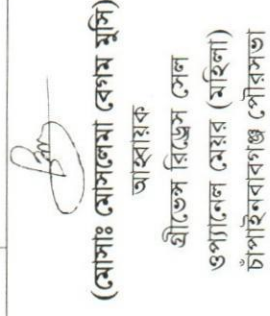 (মোসাঃ মোসলেমা বেগম মুসি)
আহবায়ক
গ্রীভেন্স রিড্রেস সেল
ও
প্যানেল মেয়র (মহিলা)
চাঁপাইনবাবগঞ্জ পৌরসভা